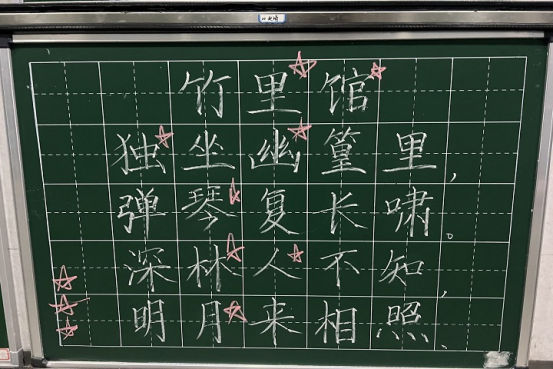 竹里馆
独坐幽篁里，
弹琴复长啸。
深林人不知，
明月来相照、